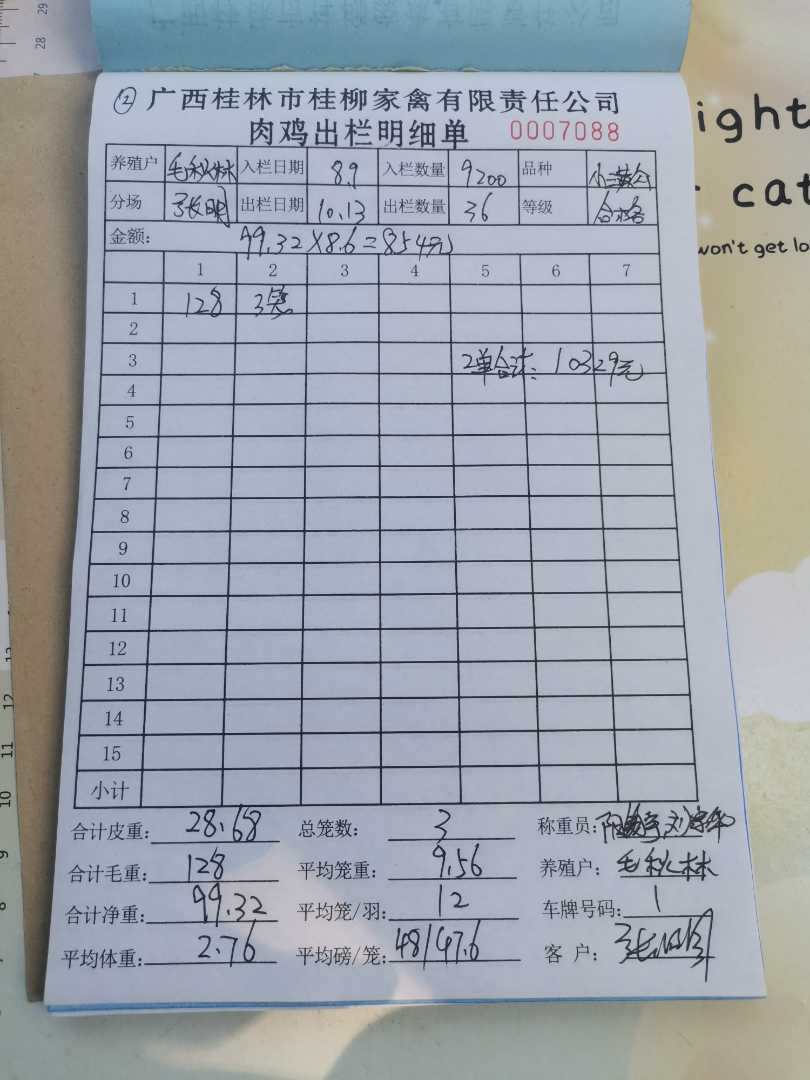 29
28
② 广西桂林市桂柳家禽有限责任公司
肉鸡出栏明细单 0007088
养殖户 毛秋林 入栏日期 8.9 入栏数量 9200 品种 小黄公
分场 张明 出栏日期 10.13 出栏数量 36 等级 合格
金额: 99.32×8.6=854元
1 2 3 4 5 6 7
1 128 3笼
2
3 2单合计: 10329元
4
5
6
7
8
9
10
11
12
13
14
15
小计
合计皮重: 28.68 总笼数: 3 称重员:
合计毛重: 128 平均笼重: 9.56 养殖户: 毛秋林
合计净重: 99.32 平均笼/羽: 12 车牌号码: 1
平均体重: 2.76 平均磅/笼: 48/47.6 客 户:
ight
cat
won't get lo
13
12
11
10
9
8